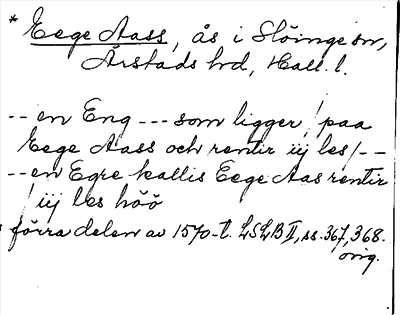 * Eege Aass, ås i Slöinge sn,
Årstads hd, Hall. l.
-- en Eng --- som ligger / paa
Eege Aass och rentir iij les / --
-- en Egre kallis Eege Aas rentir
/ iij les höö
förra delen av 1570-t. LSLB II, ss. 367, 368.
orig.